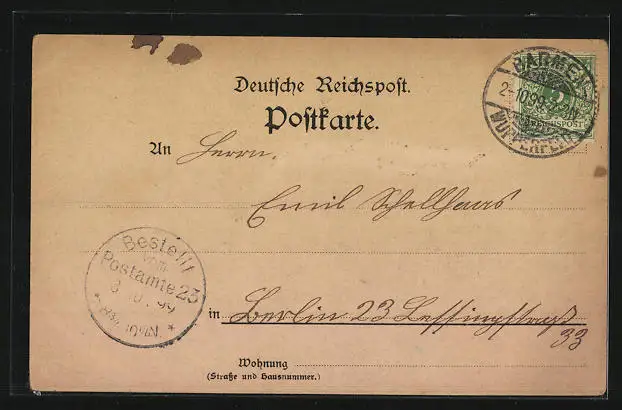 Deutsche Reichspost.
Postkarte.
BARMEN-
2-10.99.
WUPPERFELD
REICHSPOST
An Herrn
Emil Schellhaas
Bestellt
vom
Postamte 23
10.99
in Berlin 23 Lessingstraße
33
Wohnung
(Straße und Hausnummer.)